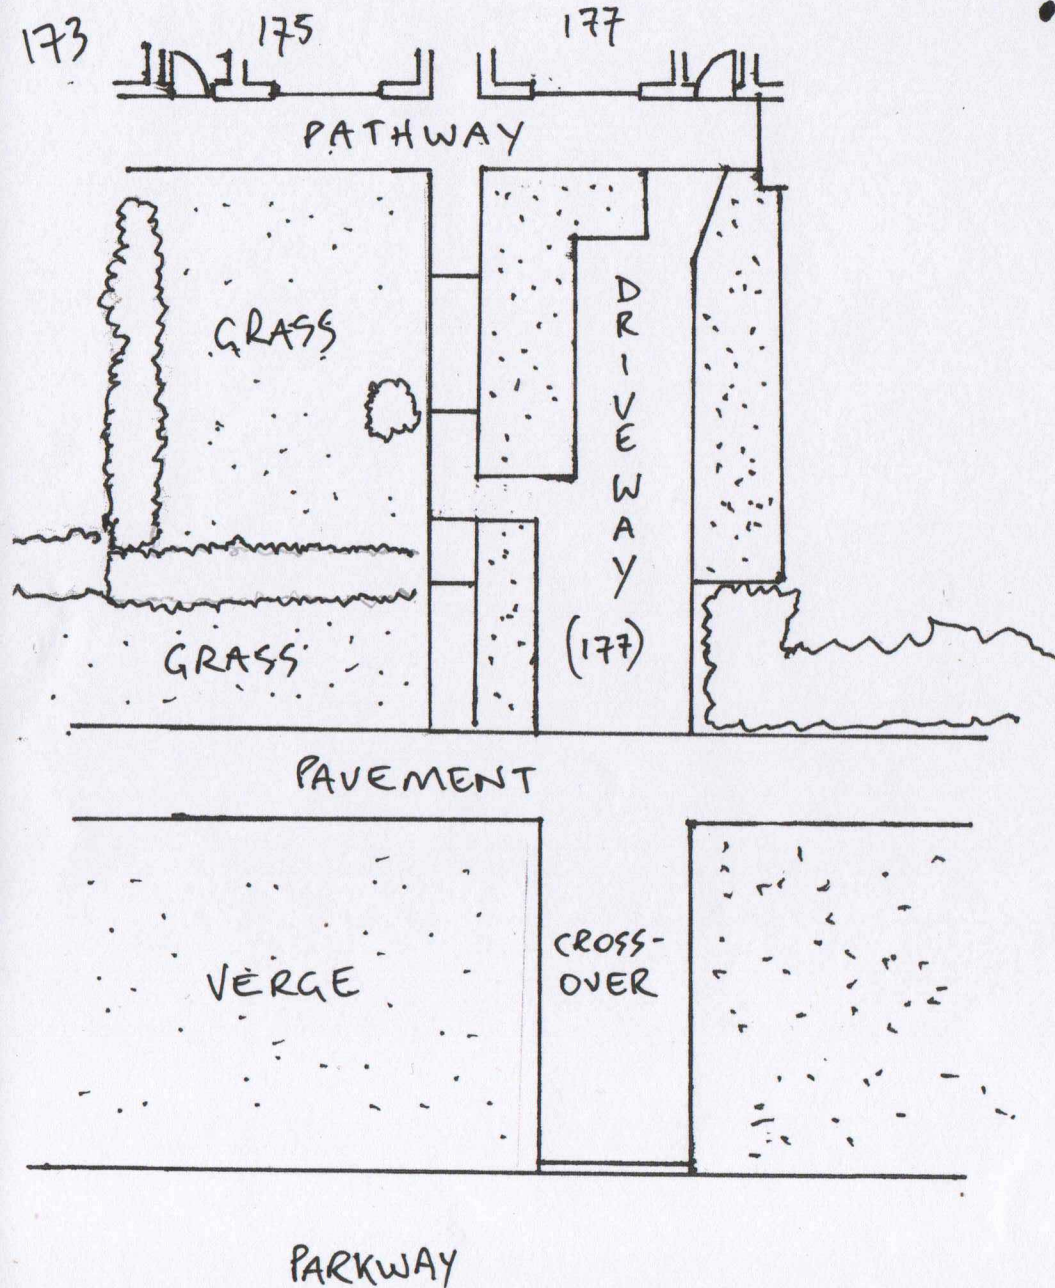 173
175
177
PATHWAY
GRASS
DRIVEWAY
(177)
GRASS
PAVEMENT
VERGE
CROSS-
OVER
PARKWAY